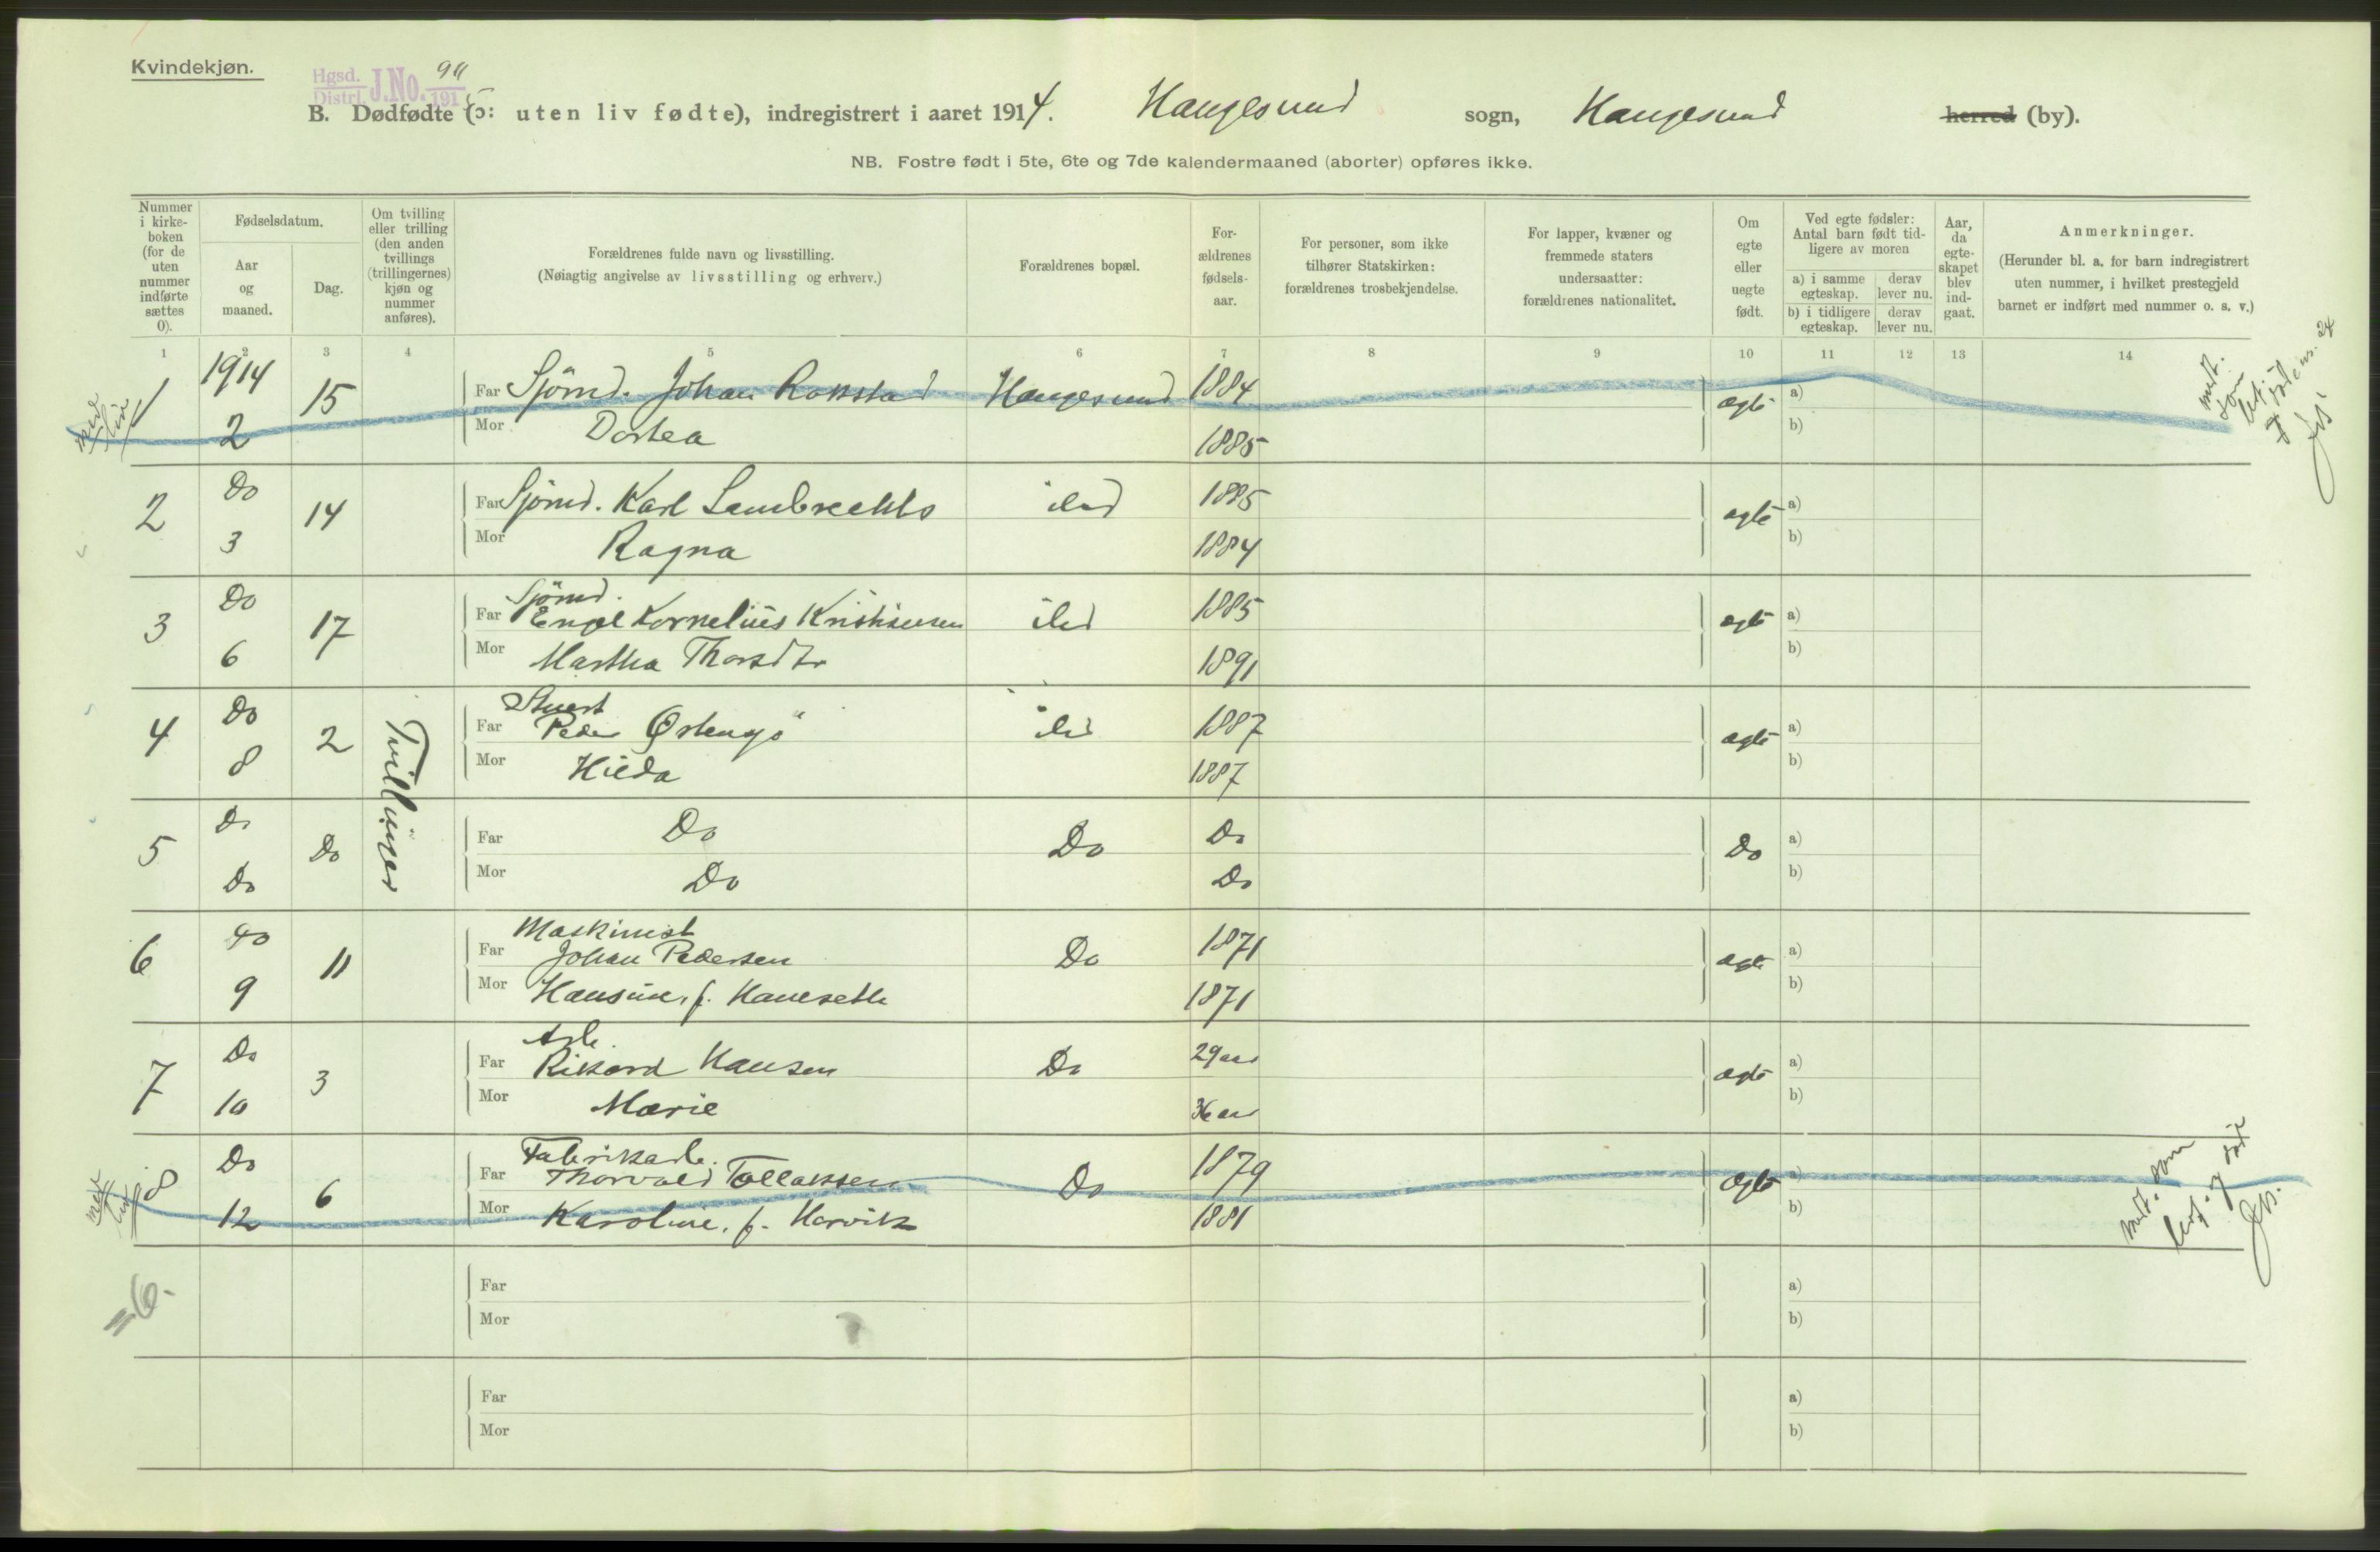 Kvindekjøn.
Hgsd. Distri. J.No. 911 / 1915
B. Dødfødte (ɔ: uten liv fødte), indregistrert i aaret 1914. Haugesund sogn, Haugesund herred (by).
NB. Fostre født i 5te, 6te og 7de kalendermaaned (aborter) opføres ikke.
Nummer i kirke-boken (for de uten nummer indførte sættes 0).
Fødselsdatum.
Aar og maaned.
Dag.
Om tvilling eller trilling (den anden tvillings (trillingernes) kjøn og nummer anføres).
Forældrenes fulde navn og livsstilling.
(Nøiagtig angivelse av livsstilling og erhverv.)
Forældrenes bopæl.
For-ældrenes fødsels-aar.
For personer, som ikke tilhører Statskirken: forældrenes trosbekjendelse.
For lapper, kvæner og fremmede staters undersaatter: forældrenes nationalitet.
Om egte eller uegte født.
Ved egte fødsler: Antal barn født tid-ligere av moren
a) i samme egteskap.
derav lever nu.
b) i tidligere egteskap.
derav lever nu.
Aar, da egte-skapet blev ind-gaat.
Anmerkninger.
(Herunder bl. a. for barn indregistrert uten nummer, i hvilket prestegjeld barnet er indført med nummer o. s. v.)
1 2 3 4 5 6 7 8 9 10 11 12 13 14
1 1914 15 Far Sjömd. Johan Rokstad Haugesund 1884 ægte a)
2 Mor Dortea 1885 b)
2 Do 14 Far Sjömd. Karl Lambrechts ibd 1885 ægte a)
3 Mor Ragna 1884 b)
Sjömd.
3 Do 17 Far Engel Kornelius Kristiansen ibd 1885 ægte a)
6 Mor Martha Thorsdtr 1891 b)
Stuert
4 Do 2 Tvillinger Far Peder Østensjö ibd 1887 ægte a)
8 Mor Hilda 1887 b)
5 Do Do Far Do Do Do Do a)
Do Mor Do Do b)
Maskinist
6 Do 11 Far Johan Pedersen Do 1871 ægte a)
9 Mor Hansine, f. Hauseth 1871 b)
Arb.
7 Do 3 Far Rikard Hansen Do 29 aar ægte a)
10 Mor Marie 36 aar b)
Fabrikarb.
8 Do 6 Far Thorvald Tollaksen Do 1879 ægte a)
12 Mor Karoline, f. Hervik 1881 b)
=6.
Far a)
Mor b)
Far a)
Mor b)